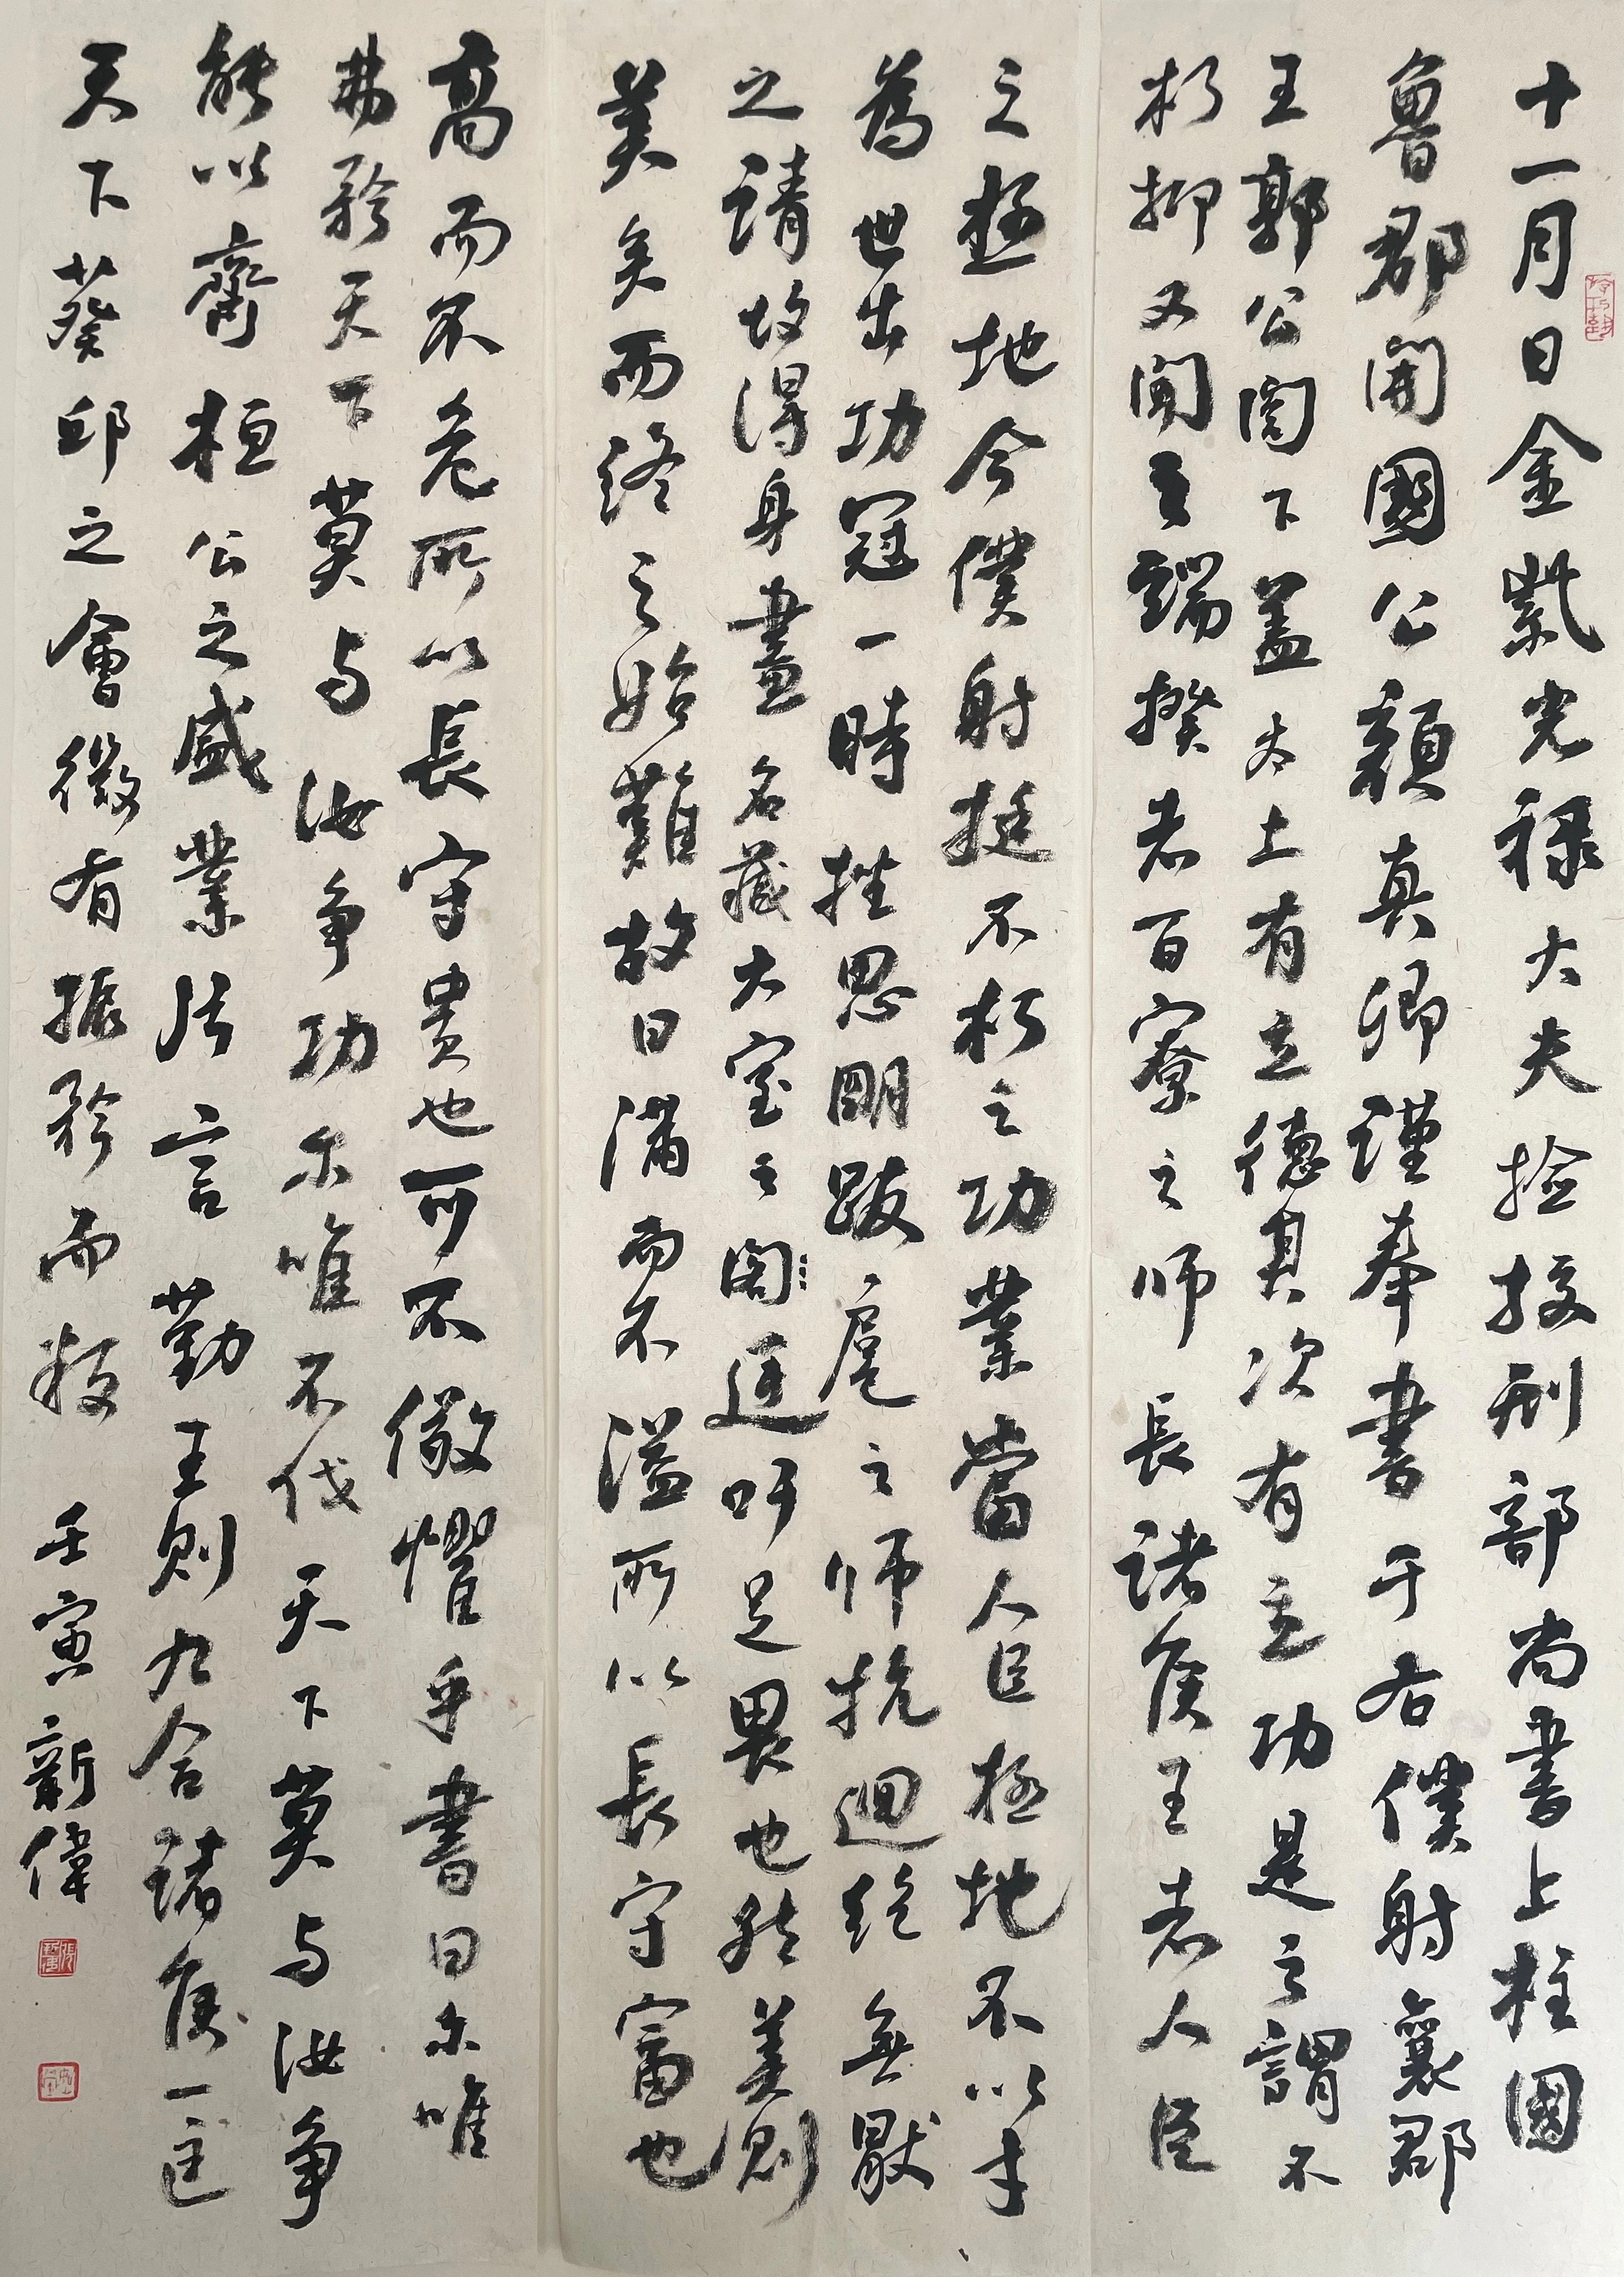 十一月日金紫光禄大夫捡挍刑部尚書上柱國
魯郡開國公顏真卿謹奉書于右僕射襄郡
王郭公閤下盖太上有立德其次有立功是之謂不
朽抑又聞之端揆者百寮之师長諸侯王者人臣
之極地今僕射挺不朽之功業當人臣極地不以才
為世出功冠一時挫思明跋扈之师抗迴紇無厭
之請故得身畫名藏太室之閣廷吁足畏也然美則
美矣而終之始難故曰满而不溢所以長守富也
高而不危所以長守贵也可不儆懼乎書曰尔唯
弗矜天下莫与汝争功尔唯不伐天下莫与汝争
能以齊桓公之盛業片言勤王則九合諸侯一匡
天下葵邱之會微有振矜而叛 壬寅新偉